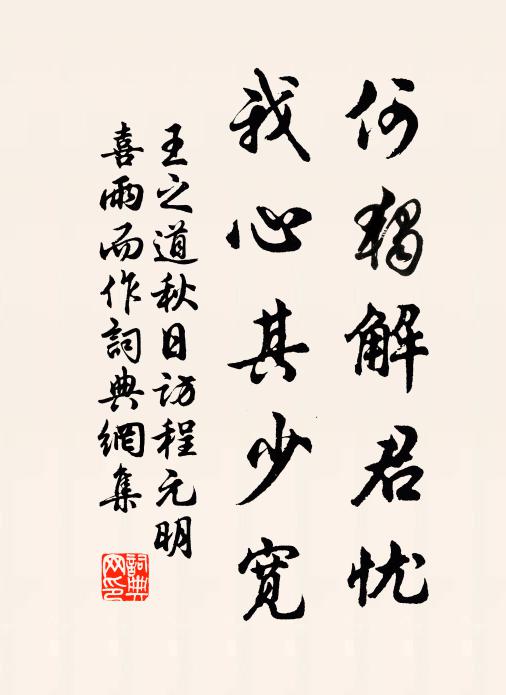 何獨解君忧
我心其少寬
王之道秋日访程元明
喜雨而作詞典網集
詞典
网印